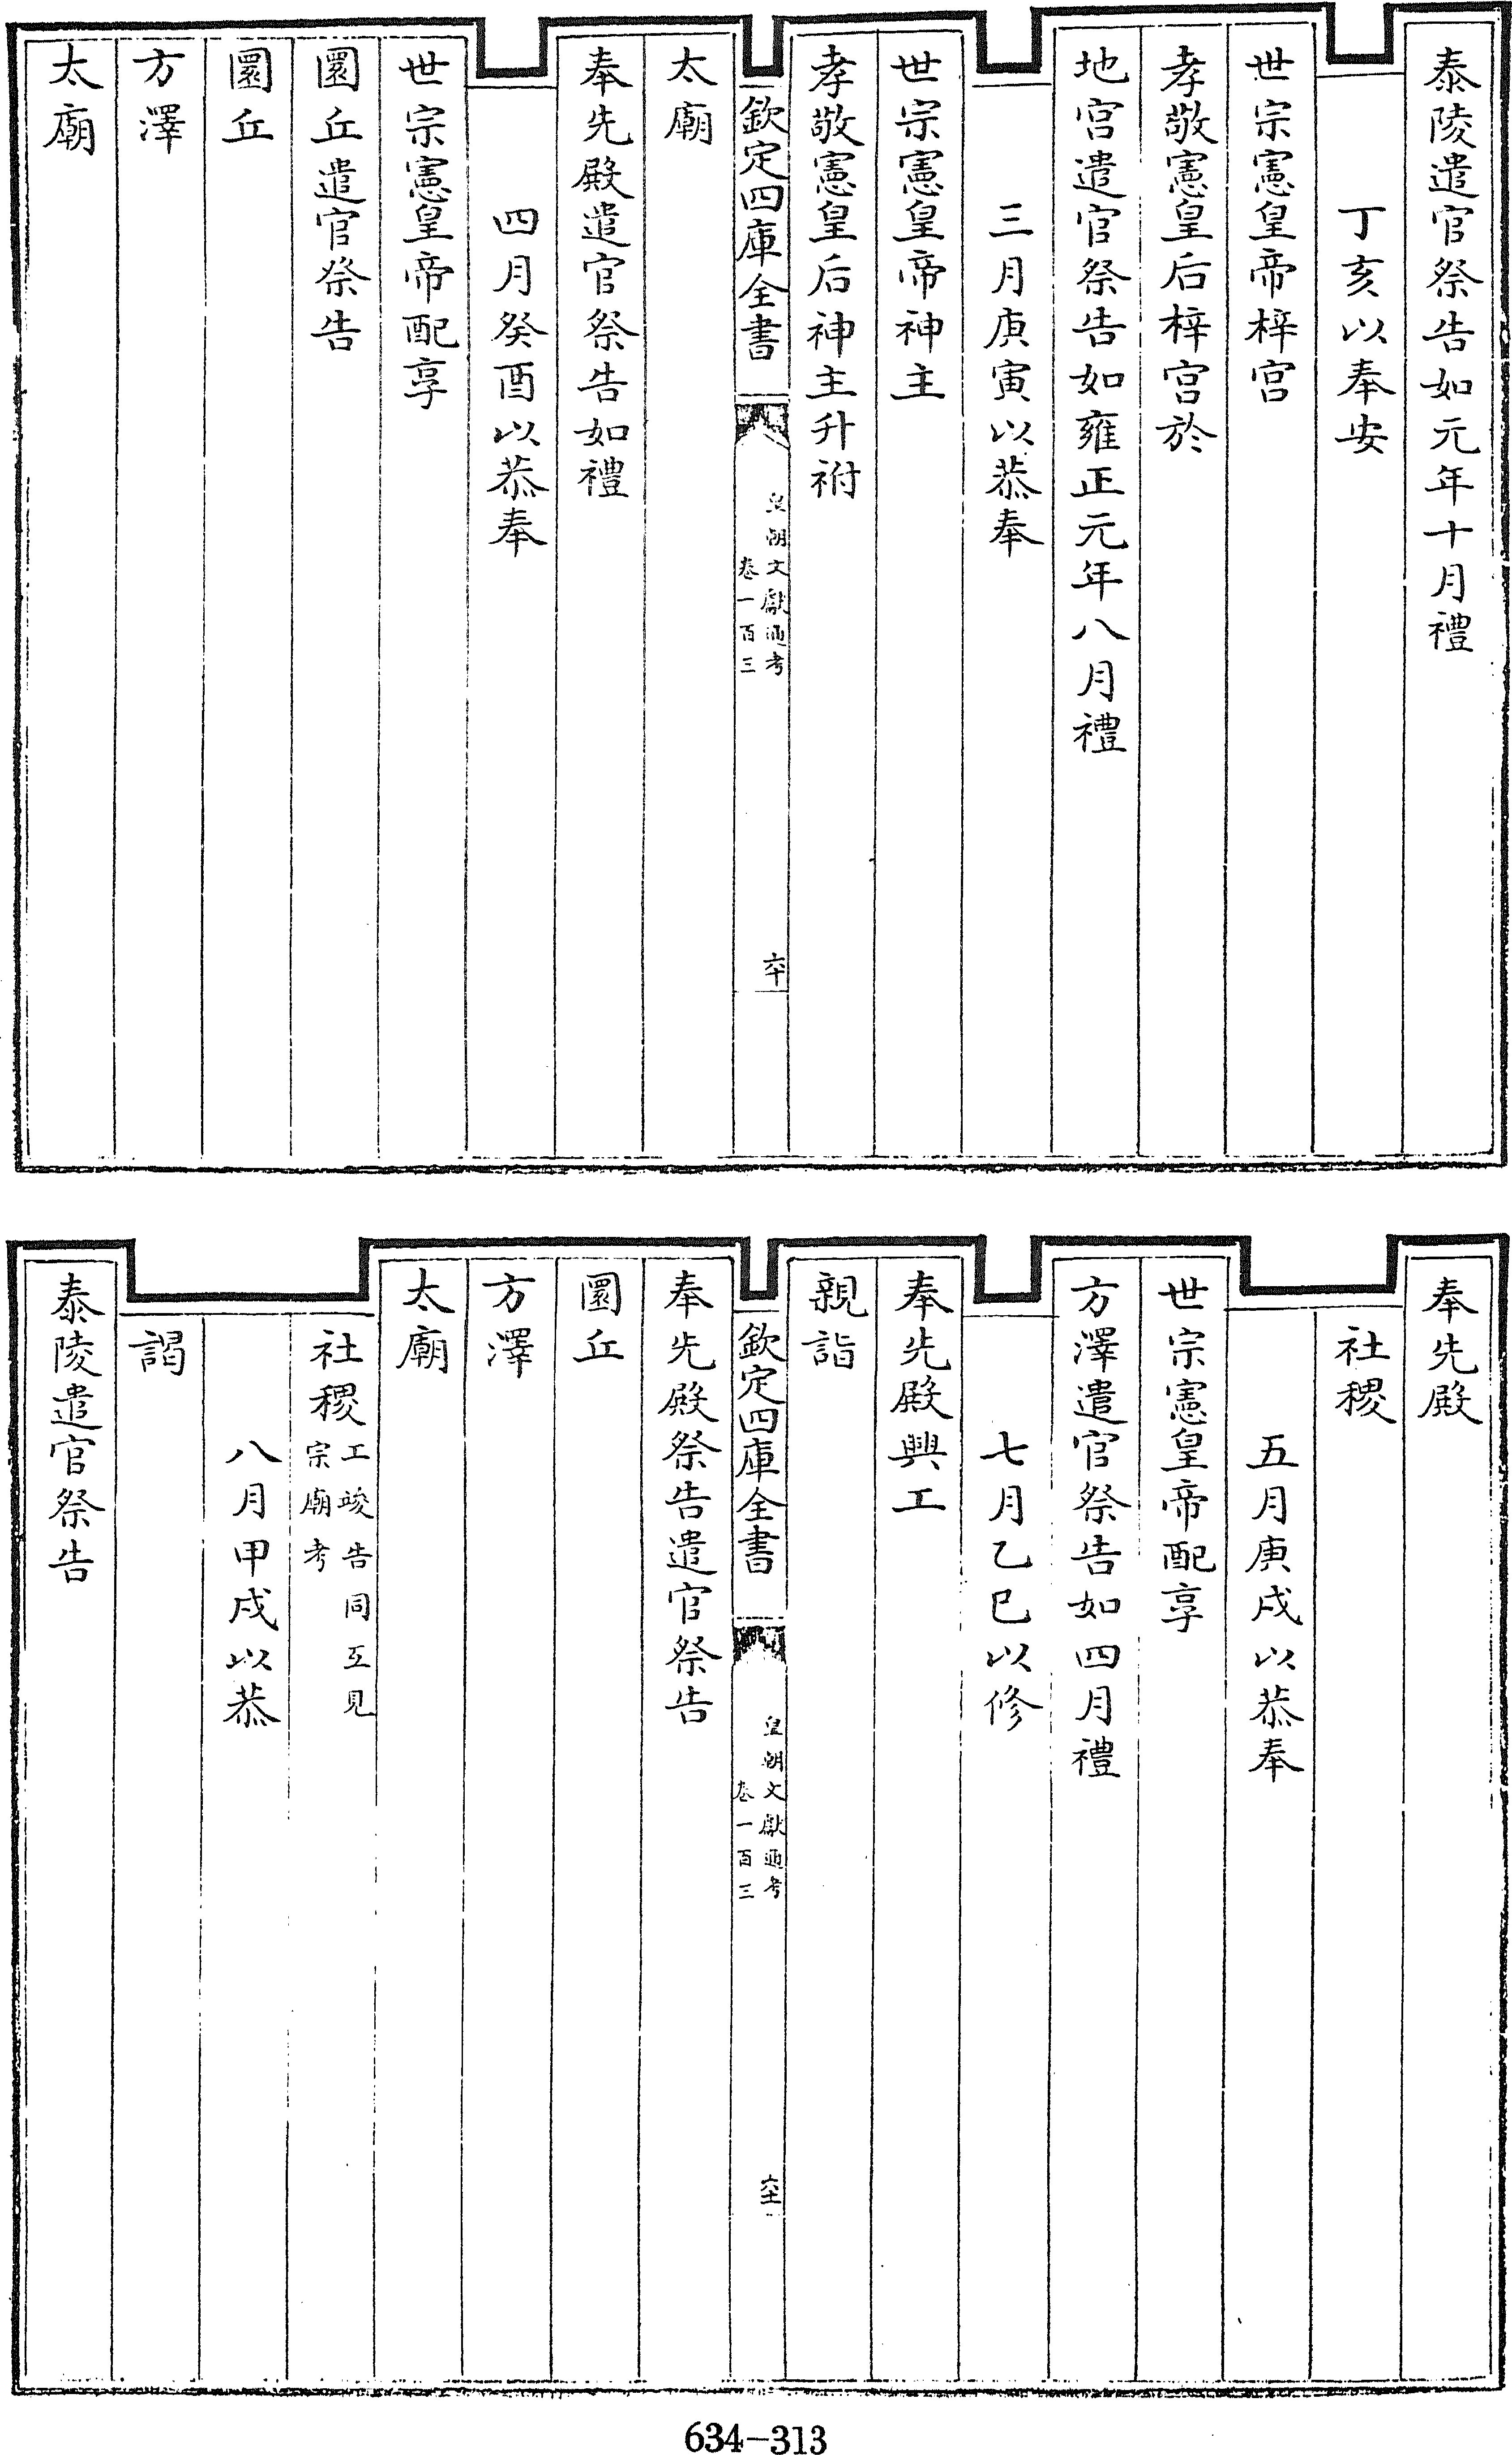 泰陵遣官祭告如元年十月禮
丁亥以奉安
世宗憲皇帝梓宫
孝敬憲皇后梓宫於
地宫遣官祭告如雍正元年八月禮
三月庚寅以恭奉
世宗憲皇帝神主
孝敬憲皇后神主升祔
欽定四庫全書
皇朝文獻通考
卷一百三
六十
太廟
奉先殿遣官祭告如禮
四月癸酉以恭奉
世宗憲皇帝配享
圜丘遣官祭告
圜丘
方澤
太廟
奉先殿
社稷
五月庚戌以恭奉
世宗憲皇帝配享
方澤遣官祭告如四月禮
七月乙巳以修
奉先殿興工
親詣
欽定四庫全書
皇朝文獻通考
卷一百三
六十一
奉先殿祭告遣官祭告
圜丘
方澤
太廟
社稷工竣告同互見
宗廟考
八月甲戌以恭
謁
泰陵遣官祭告
634-313